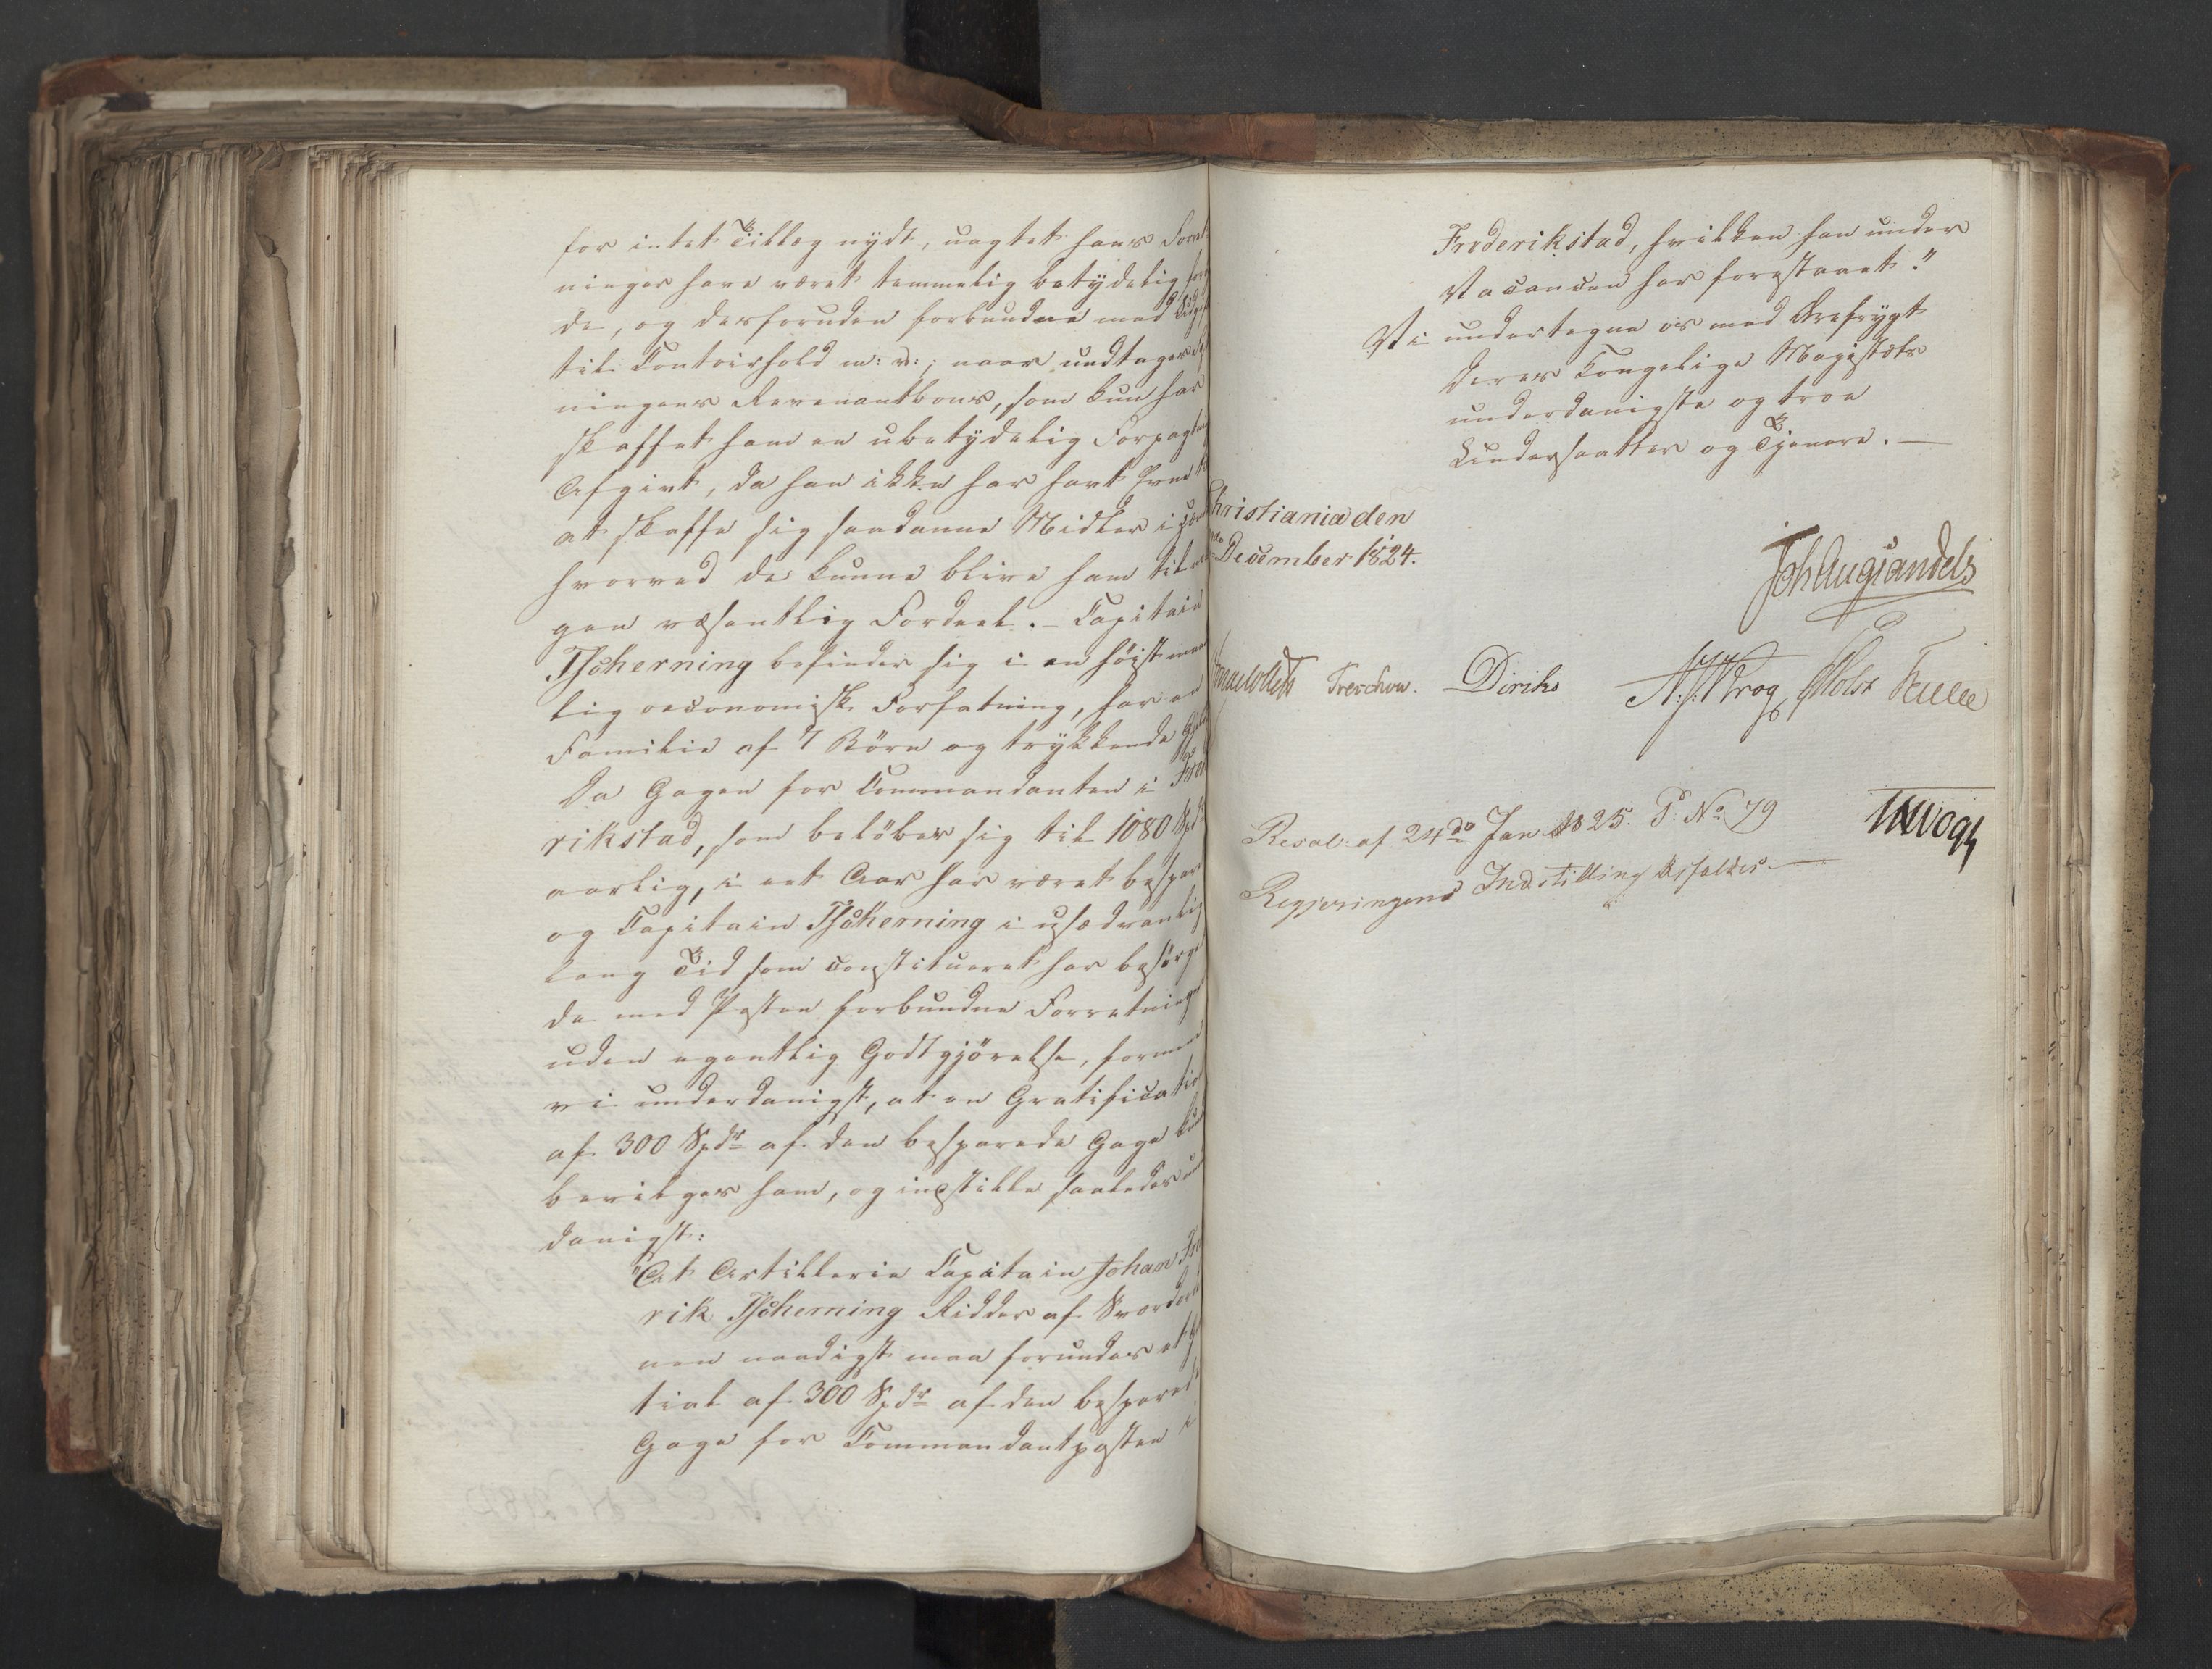 for intet Tillæg nydt, uagtet hans Forret
ninger have været temmelig betydelig
de, og desforuden forbundne med Udgif
til Contoirhold m: v:, naar undtages
ningens Revenantbous, som kun har
skaffet ham en ubetydelig Forpagtnings
Afgivt, da han ikke har havt Evne
at skaffe sig saadanne Midler
hvorved de kunne blive ham til no
gen væsentlig Fordeel. – Capitain
Tscherning befinder sig i en høist
lig oeconomisk Forfatning, har en
Familie af 7 Børn og trykkende Gjæld
Da Gagen for Commandanten i Frede
rikstad, som beløber sig til 1080 Spdr
aarlig, i eet Aar har været bespar
og Capitain Tscherning i usædvanlig
lang Tid som constitueret har besørget
de med Posten forbundne Forretninger
uden egentlig Godtgjørelse, formene
vi underdanigst, at en Gratification
af 300 Spdr af den besparede Gage kunde
bevilges ham, og indstille saaledes un
danigst:
"At Artillerie Capitain Johan Fre
rik Tscherning Ridder af Sværdord
nen naadigst maa forundes et
tial af 300 Spdr af den besparede
Gage for Commandantposten i
Frederikstad, hvilken han under
Vacancen har forestaaet."
Vi undertegne os med Ærefrygt
Deres Kongelige Majestæts
underdanigste og troe
Undersaatter og Tjenere. —
Christiania den
December 1824.
Joh Aug Sandels
Treschow. Diriks A. J. Krog Holst
Resol: af 24de Jan 1825. P. No 79
Regjeringens Indstilling bifaldes —